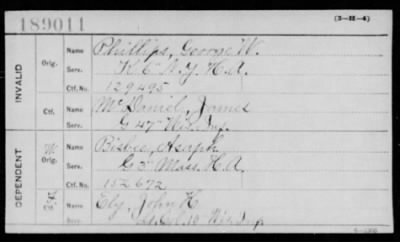 189011
(3-H-4)
INVALID
Orig. Name Phillips, George W.
Serv. K 6" N.Y. H.A.
Ctf. No. 129495
Ctf. Name McDaniel, James
Serv. G 47" Wis. Inf.
DEPENDENT
Orig. Name Bisbee, Asaph
Serv. G 3" Mass. H.A.
Ctf. No. 152672
Name Ely, John K
Serv. Wis. Inf